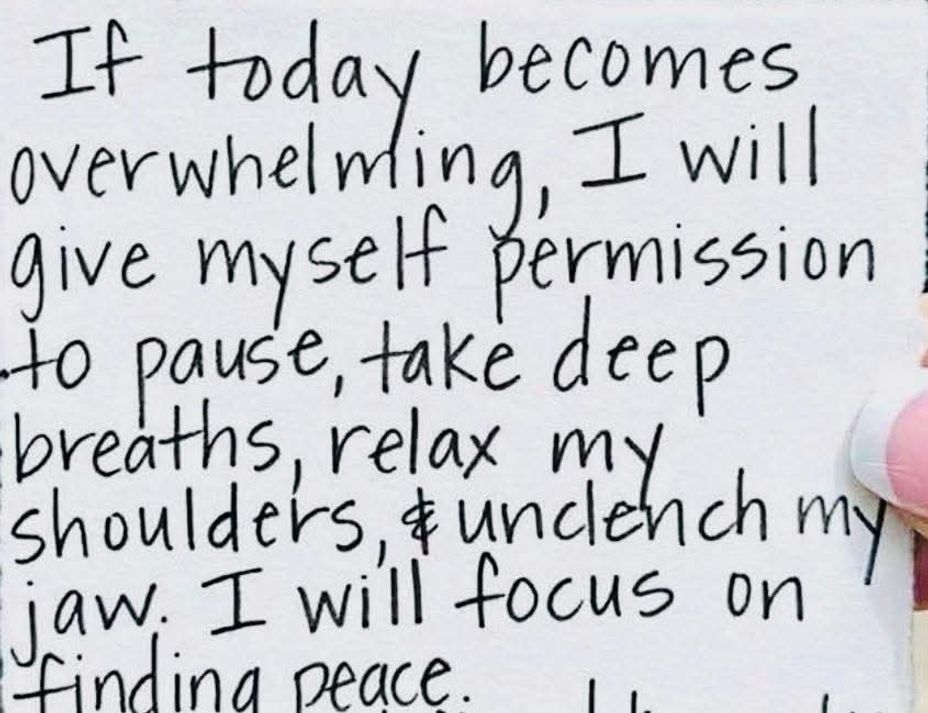 If today becomes
overwhelming, I will
give myself permission
to pause, take deep
breaths, relax my
shoulders, & unclench my
jaw. I will focus on
finding peace.